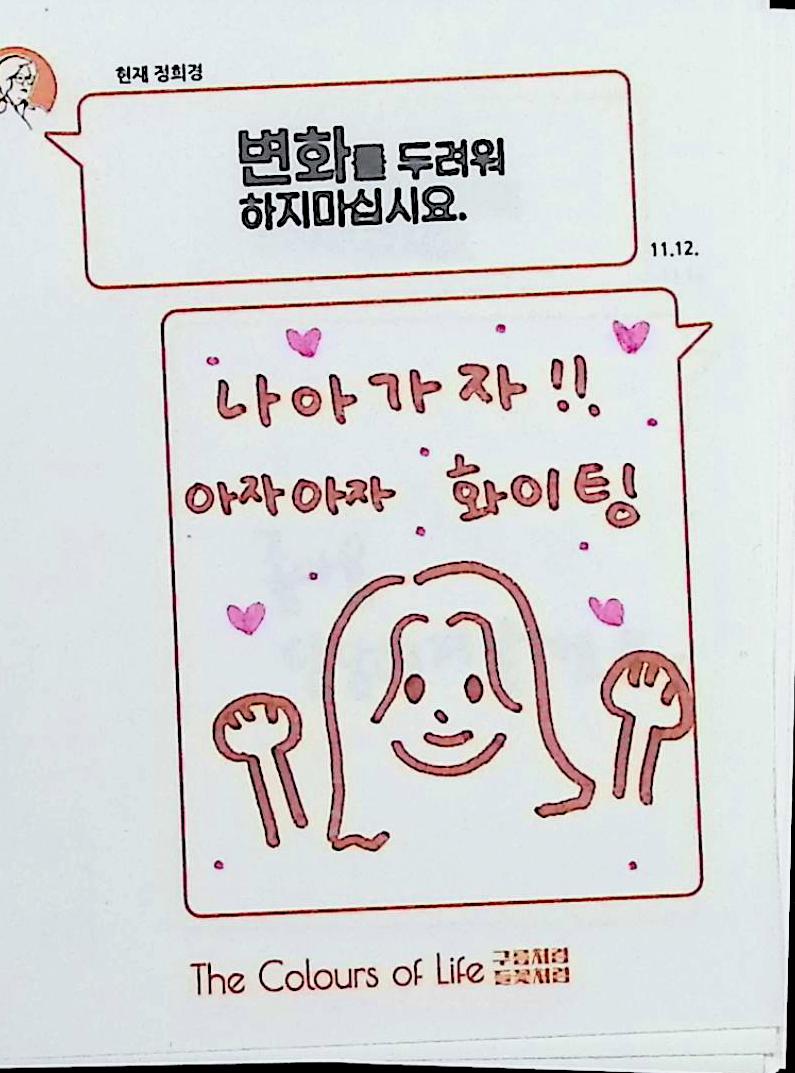 현재 정희경
변화를 두려워
하지마십시요.
11.12.
나아가자!!
아자아자 화이팅
The Colours of Life 구름처럼
들꽃처럼